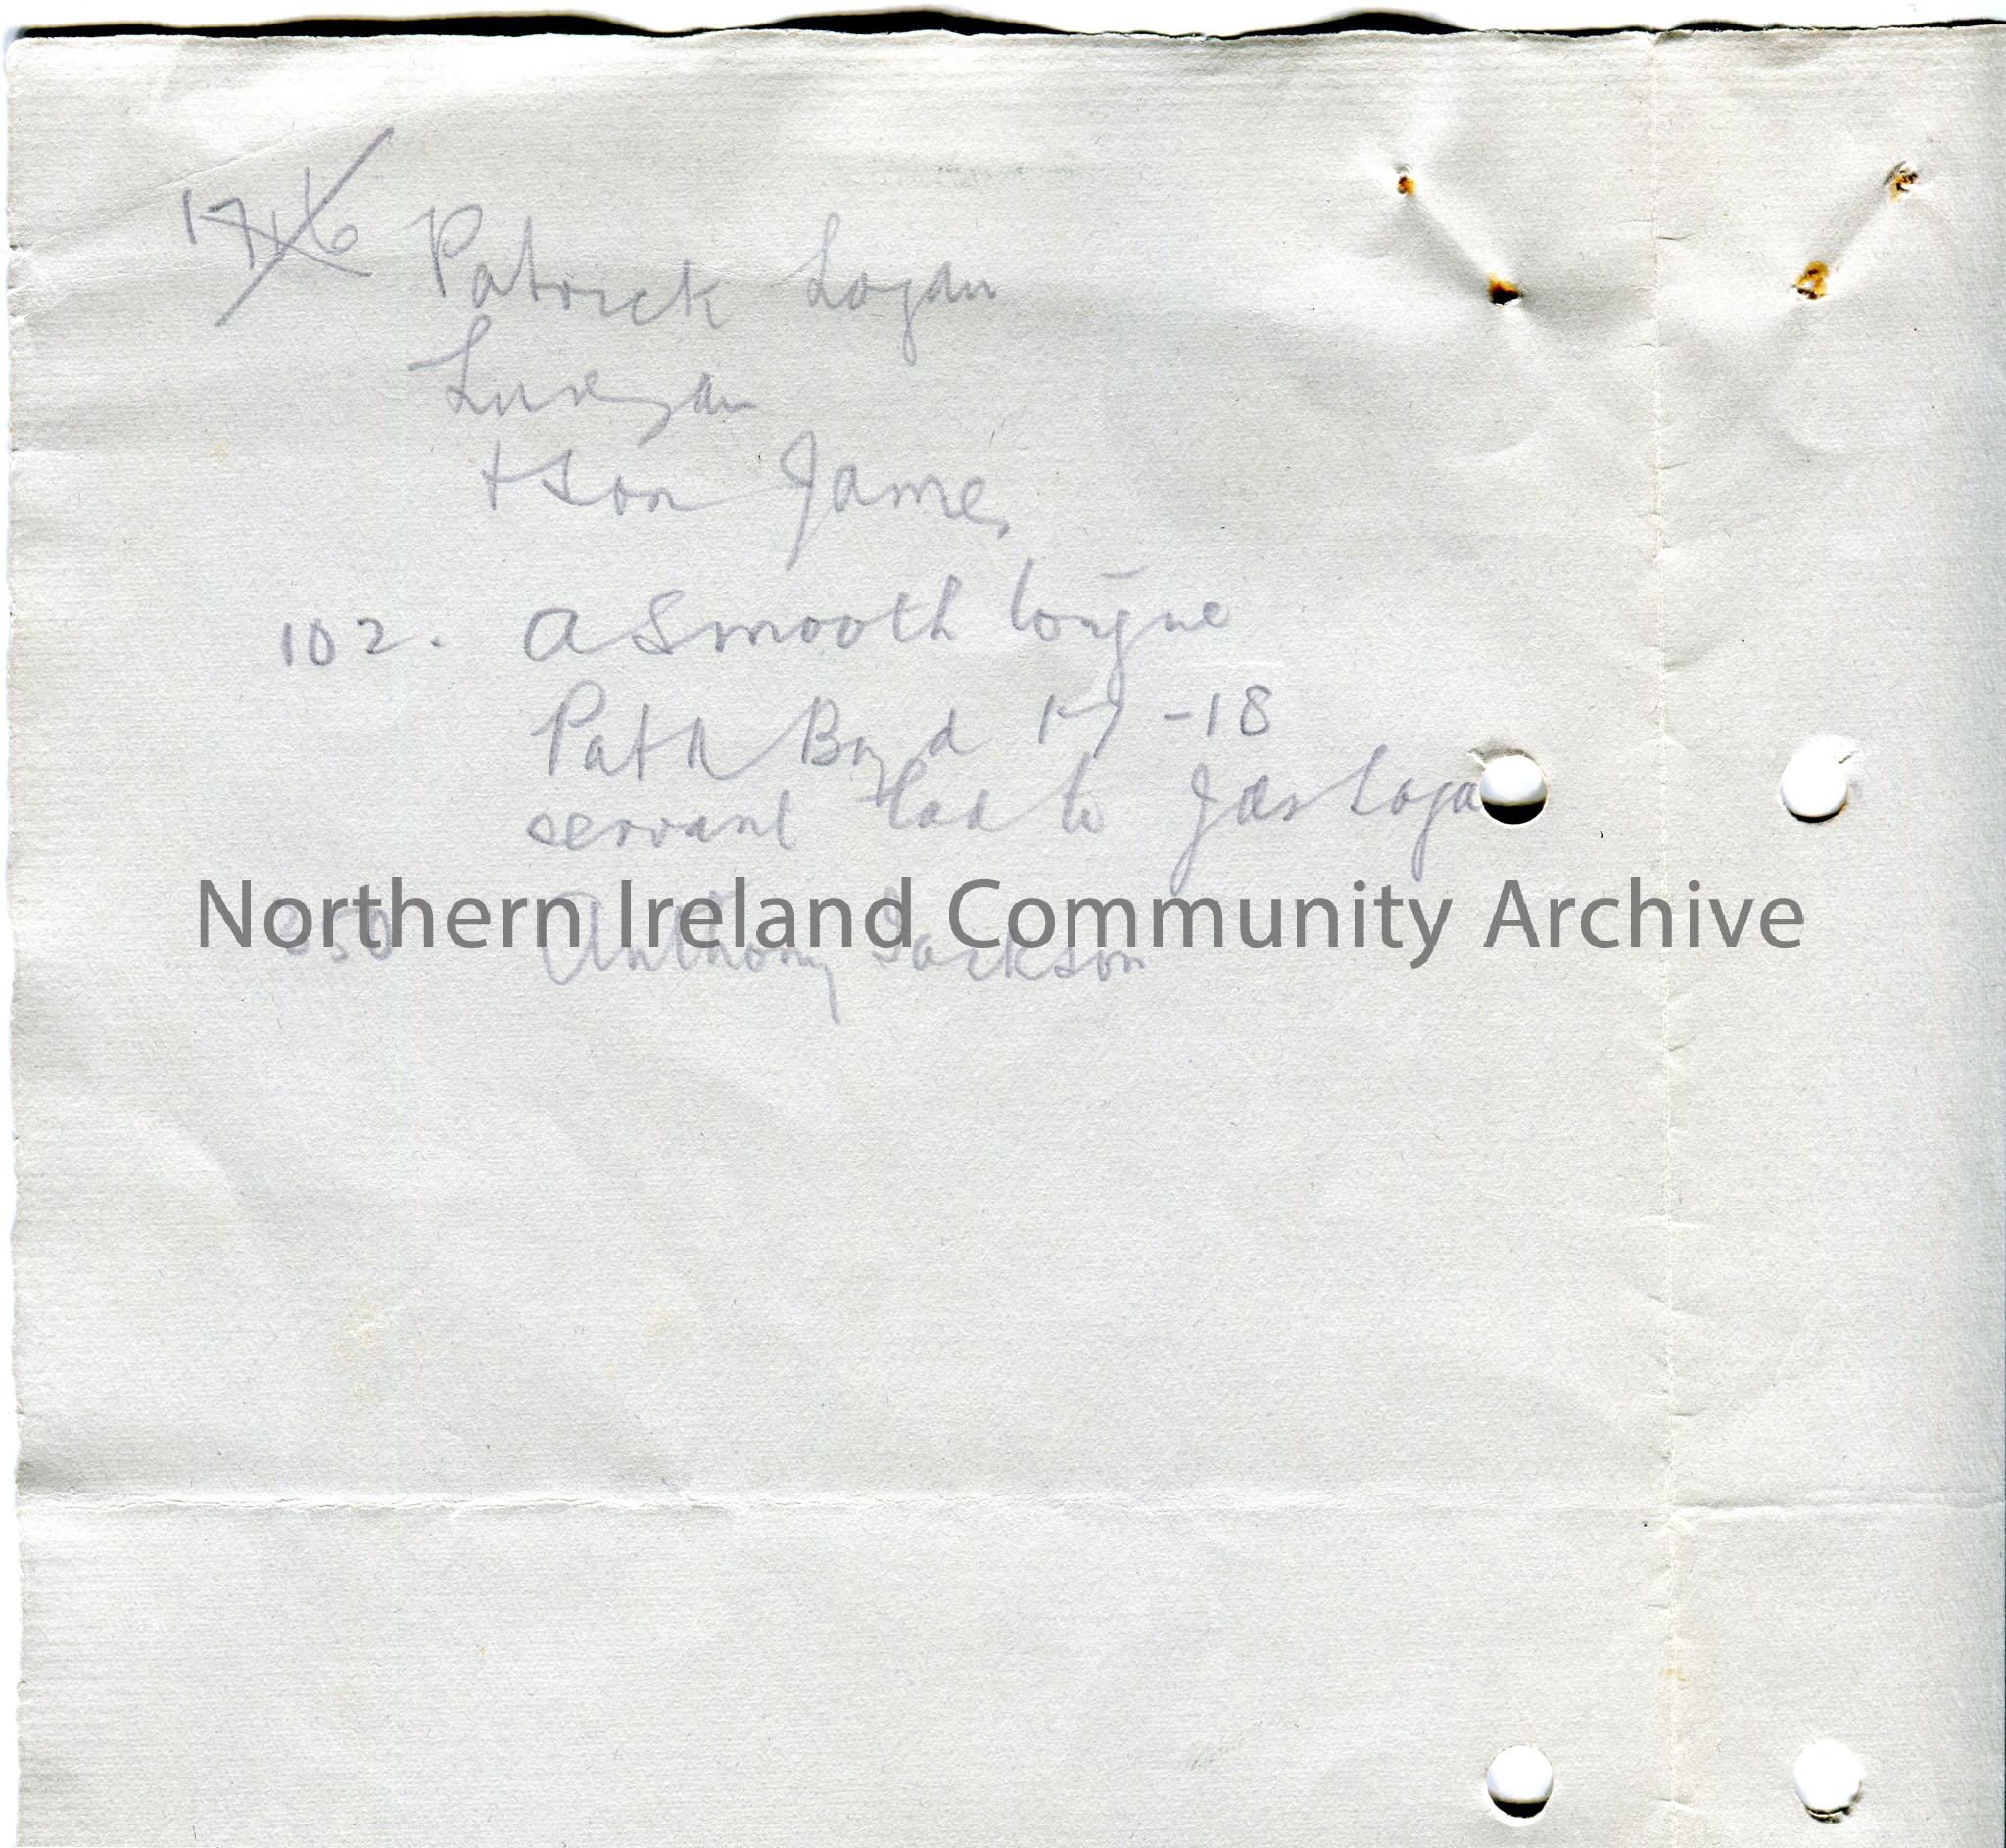 Patrick Logan
Lurgan
+ Son James
102. a smooth tongue
Patk Boyd 17-18
servant lad to Jas Loga
Northern Ireland Community Archive
350 Anthony Jackson